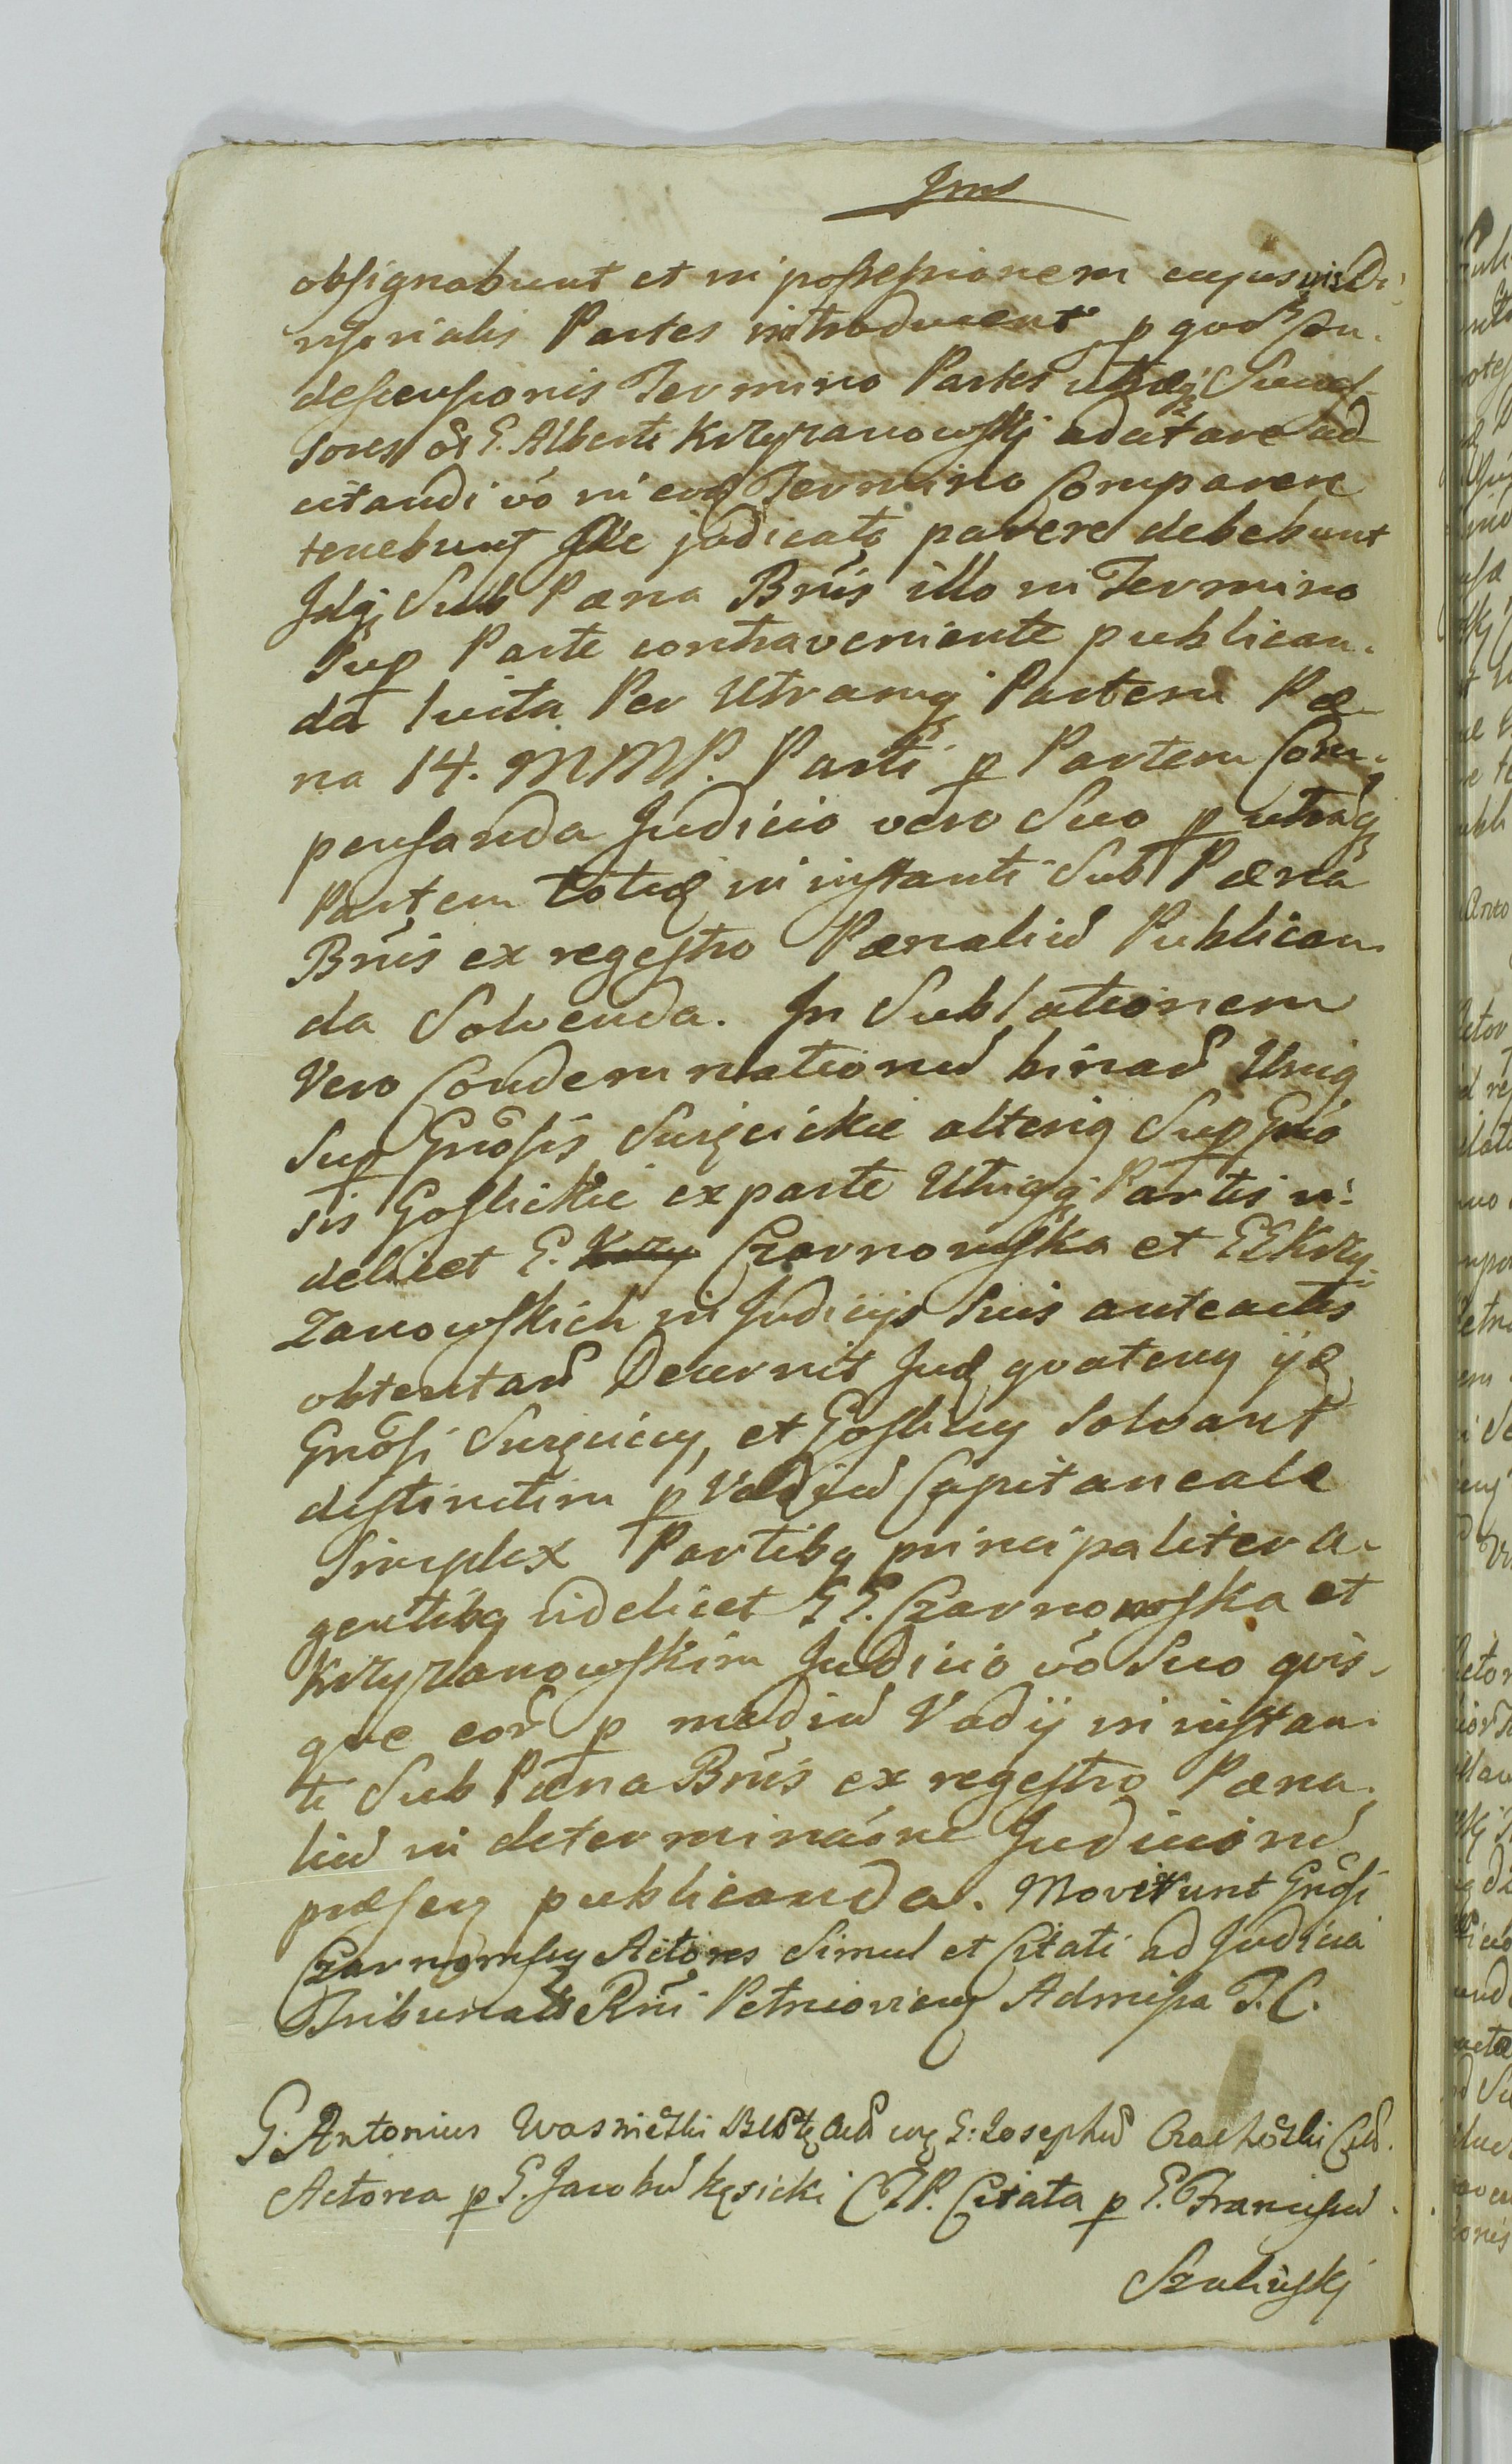 obsignabunt et in possessionem cujusvis Di
visorialis Partes introducent p qvod Con
descensionis Termino Partes utraeq Succes
sores ol E. Alberti Krzyzanowskj adcitare ad
citandi vo in eoq Termino Comparere
tenebunt Rei judicatae parere debebunt
Idq Sub Paena Bnis illo in Termino
Sup Parte contraveniente publican
da luita Per Utramq Partem Pae
na 14. MMP. Parti p Partem Com
pensanda Judicio vero Suo p utraq
Partem totide in instanti Sub Paena
Bnis ex regestro Paenaliu Publican
da Solvenda. In Sublationem
Vero Condemnationu binaru Unig
Sup Gnosis Suięcickie alterig Sup Gno
sis Goslickie ex parte Utrigq Partis vi
delicet E. Krzy Czarnowska et EE Krzy
zanowskich in Judicijs Suis anteactis
obtentaru Decernit Jud qvateng ijd
Gnosi Suięciccy, et Goslicey Solvant
distinctim p Vadiu Capitaneale
Simplex Partibq principaliter a
gentibq videlicet EE. Czarnowska et
Krzyzanowskim Judicio vo Suo qvis
qve eor p mediu Vadij in instan
ti Sub Paena Bnis ex regestro Paena
liu in determinaone Judicioru
praeseng publicanda. Moverunt Gnosi
Czarnomscy Actores Simul et Citati ad Judicia
Tribunalis Rni Petricovieng Admissa T. C.
G: Antonius E: Josephu
Actorea p E. Jacobu Kęsicki CTP. Citata p E. Franciscu
Szulinskj